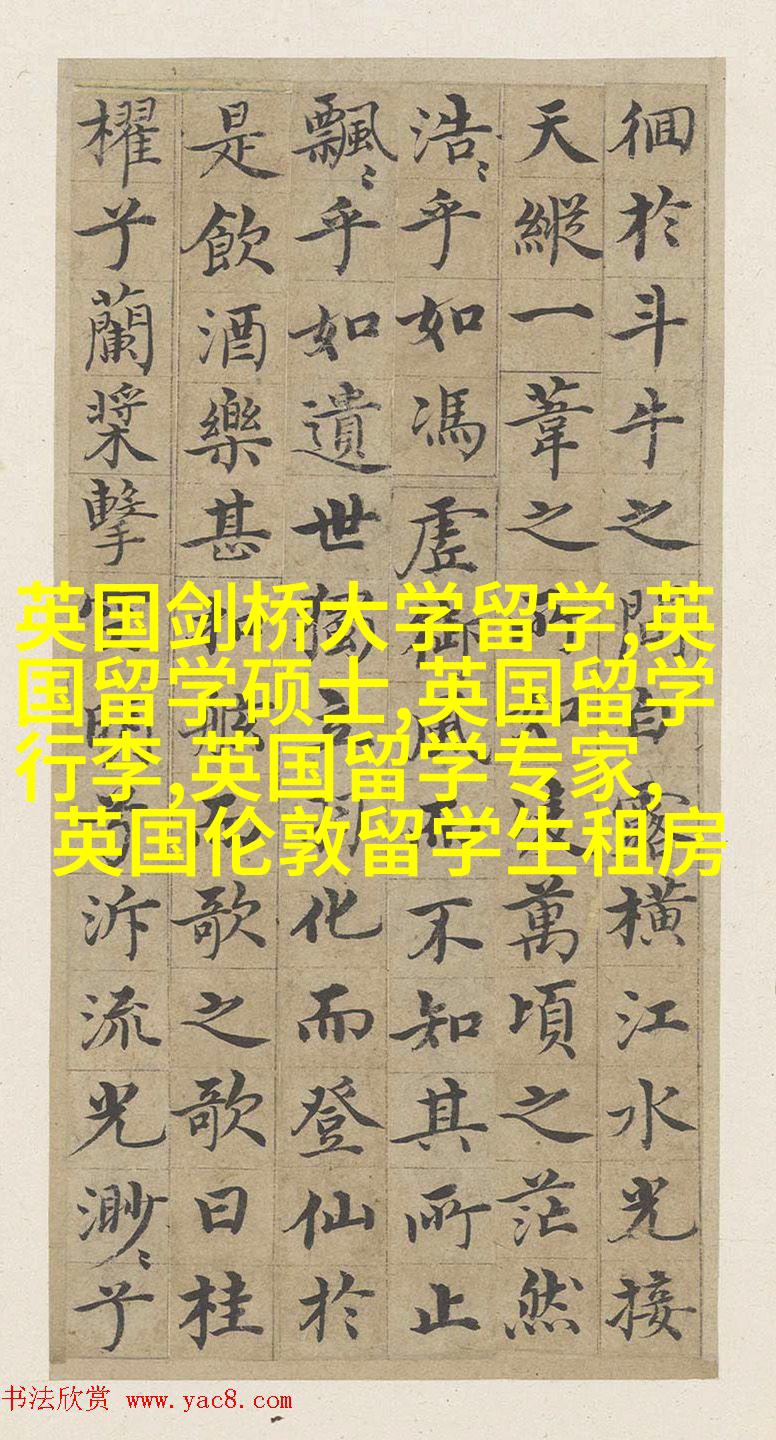 徊於斗牛之間白露橫江水光接
天縱一葦之所如凌萬頃之茫然
浩〻乎如馮虛御風而不知其所止
飄〻乎如遺世獨立羽化而登仙於
是飲酒樂甚扣舷而歌之歌曰桂
櫂兮蘭槳擊空明兮泝流光渺〻兮
英国剑桥大学留学,英
国留学硕士,英国留学
行李,英国留学专家,
英国伦敦留学生租房
书法欣赏 www.yac8.com